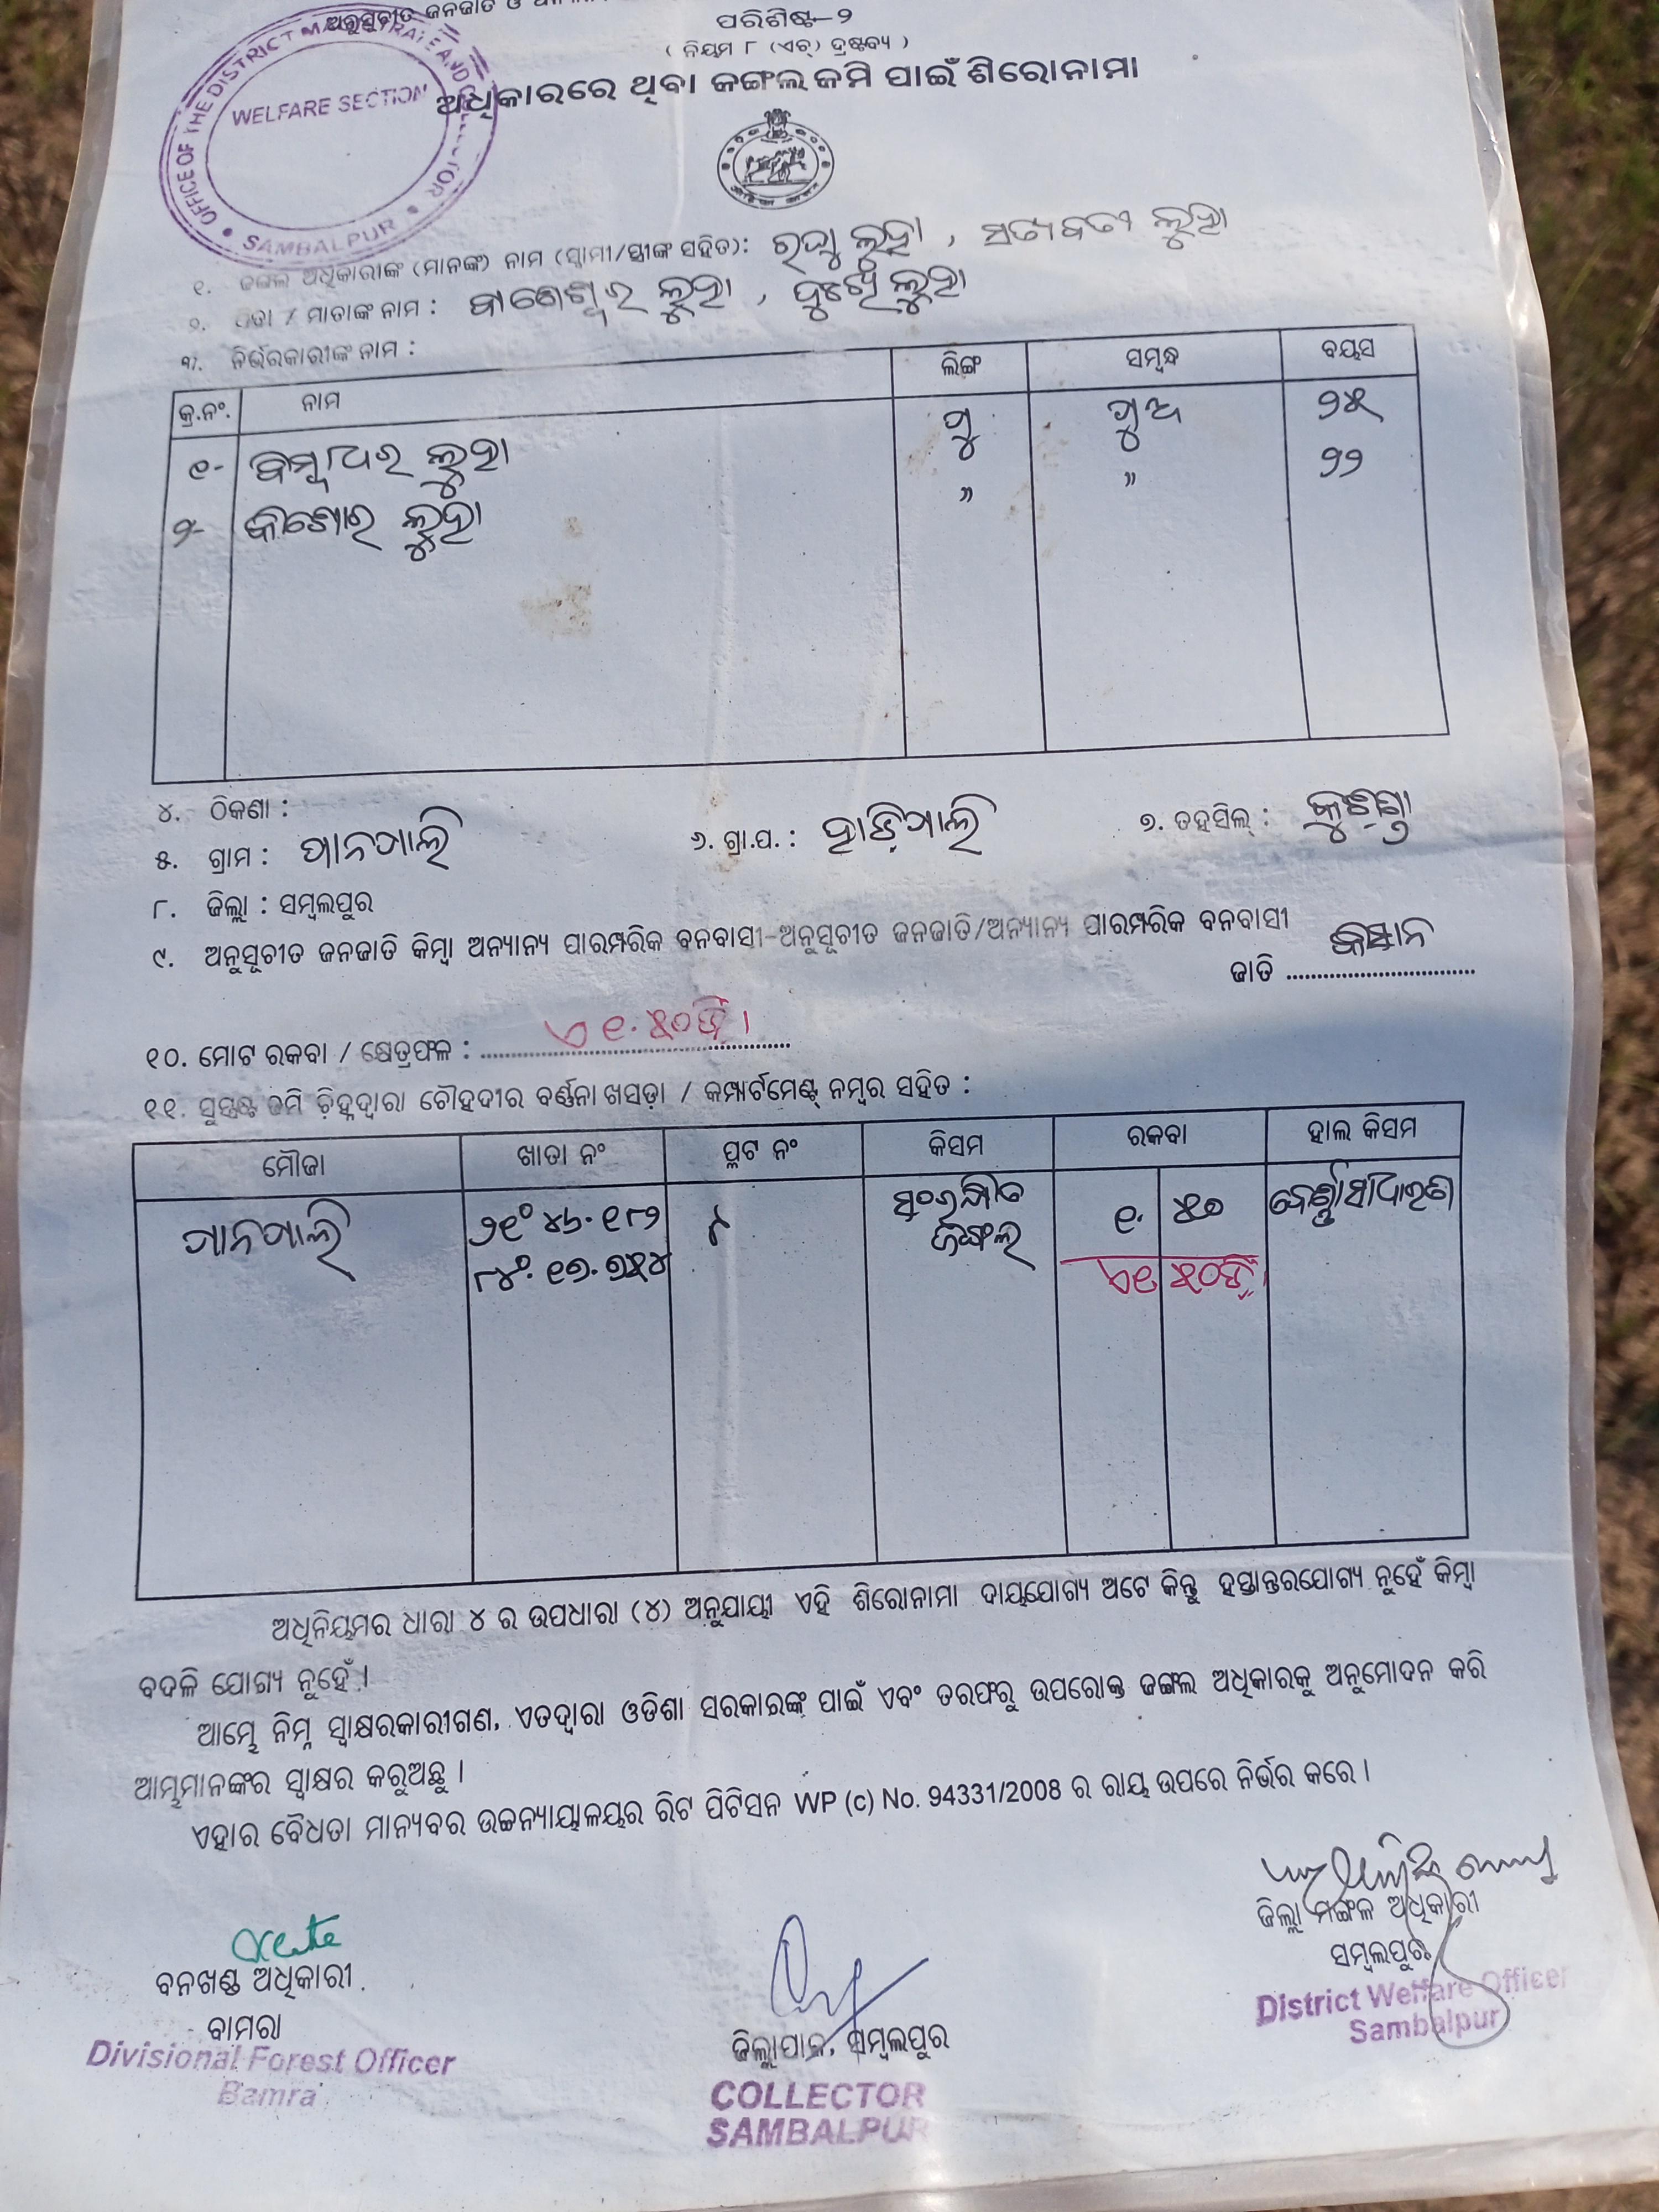 ଅନୁସୂଚୀତ ଜନଜାତି ଓ
ପରିଶିଷ୍ଟ-୨
( ନିୟମ ୮ (ଏଚ୍) ଦ୍ରଷ୍ଟବ୍ୟ )
ଅଧିକାରରେ ଥିବା ଜଙ୍ଗଲ ଜମି ପାଇଁ ଶିରୋନାମା
OFFICE OF THE DISTRICT MAGISTRATE AND COLLECTOR
WELFARE SECTION
SAMBALPUR
୧. ଜଙ୍ଗଲ ଅଧିକାରୀଙ୍କ (ମାନଙ୍କ) ନାମ (ସ୍ଵାମୀ/ସ୍ତ୍ରୀଙ୍କ ସହିତ): ରଘୁ ଲୁହା , ସତ୍ୟବତୀ ଲୁହା
୨. ପିତା / ମାତାଙ୍କ ନାମ : ବାଣେଶ୍ୱର ଲୁହା , ଲୁହା
୩. ନିର୍ଭରକାରୀଙ୍କ ନାମ :
କ୍ର.ନଂ. ନାମ ଲିଙ୍ଗ ସମ୍ବନ୍ଧ ବୟସ
୧- ବିମ୍ବାଧର ଲୁହା ପୁ ପୁଅ ୨୫
୨- କିଶୋର ଲୁହା " " ୨୨
୪. ଠିକଣା :
୫. ଗ୍ରାମ : ପାନପାଲି ୬. ଗ୍ରା.ପ. : ହାଡ଼ିପାଲି ୭. ତହସିଲ୍ : କୁଚିଣ୍ଡା
୮. ଜିଲ୍ଲା : ସମ୍ବଲପୁର
୯. ଅନୁସୂଚୀତ ଜନଜାତି କିମ୍ବା ଅନ୍ୟାନ୍ୟ ପାରମ୍ପରିକ ବନବାସୀ-ଅନୁସୂଚୀତ ଜନଜାତି/ଅନ୍ୟାନ୍ୟ ପାରମ୍ପରିକ ବନବାସୀ
ଜାତି କିସାନ
୧୦. ମୋଟ ରକବା / କ୍ଷେତ୍ରଫଳ : ଏ ୧.୫୦ଡି ।
୧୧. ସୁସ୍ପଷ୍ଟ ଜମି ଚ଼ିହ୍ନଦ୍ଵାରା ଚୌହଦୀର ବର୍ଣ୍ଣନା ଖସଡ଼ା / କମ୍ପାର୍ଟମେଣ୍ଟ୍ ନମ୍ବର ସହିତ :
ମୌଜା ଖାତା ନଂ ପ୍ଲଟ ନଂ କିସମ ରକବା ହାଲ କିସମ
ପାନପାଲି ୨୧° ୪୬.୧୮୨ ୮ ସଂରକ୍ଷିତ ୧. ୫୦ ବେର୍ଣ୍ଣାସାଧାରଣ
୮୪°. ୧୭. ୭୫୪ ଜଙ୍ଗଲ ଏ୧. ୫୦ଡି.
ଅଧିନିୟମର ଧାରା ୪ ର ଉପଧାରା (୪) ଅନୁଯାୟୀ ଏହି ଶିରୋନାମା ଦାୟଯୋଗ୍ୟ ଅଟେ କିନ୍ତୁ ହସ୍ତାନ୍ତରଯୋଗ୍ୟ ନୁହେଁ କିମ୍ବା
ବଦଳି ଯୋଗ୍ୟ ନୁହେଁ ।
ଆମ୍ଭେ ନିମ୍ନ ସ୍ଵାକ୍ଷରକାରୀଗଣ, ଏତଦ୍ଵାରା ଓଡିଶା ସରକାରଙ୍କ ପାଇଁ ଏବଂ ତରଫରୁ ଉପରୋକ୍ତ ଜଙ୍ଗଲ ଅଧିକାରକୁ ଅନୁମୋଦନ କରି
ଆମ୍ଭମାନଙ୍କର ସ୍ଵାକ୍ଷର କରୁଅଛୁ ।
ଏହାର ବୈଧତା ମାନ୍ୟବର ଉଚ୍ଚନ୍ୟାୟାଳୟର ରିଟ ପିଟିସନ WP (c) No. 94331/2008 ର ରାୟ ଉପରେ ନିର୍ଭର କରେ ।
ବନଖଣ୍ଡ ଅଧିକାରୀ
ବାମରା
Divisional Forest Officer
Bamra
ଜିଲ୍ଲାପାଳ, ସମ୍ବଲପୁର
COLLECTOR
SAMBALPUR
ଜିଲ୍ଲା ମଙ୍ଗଳ ଅଧିକାରୀ
ସମ୍ବଲପୁର
District Welfare Officer
Sambalpur